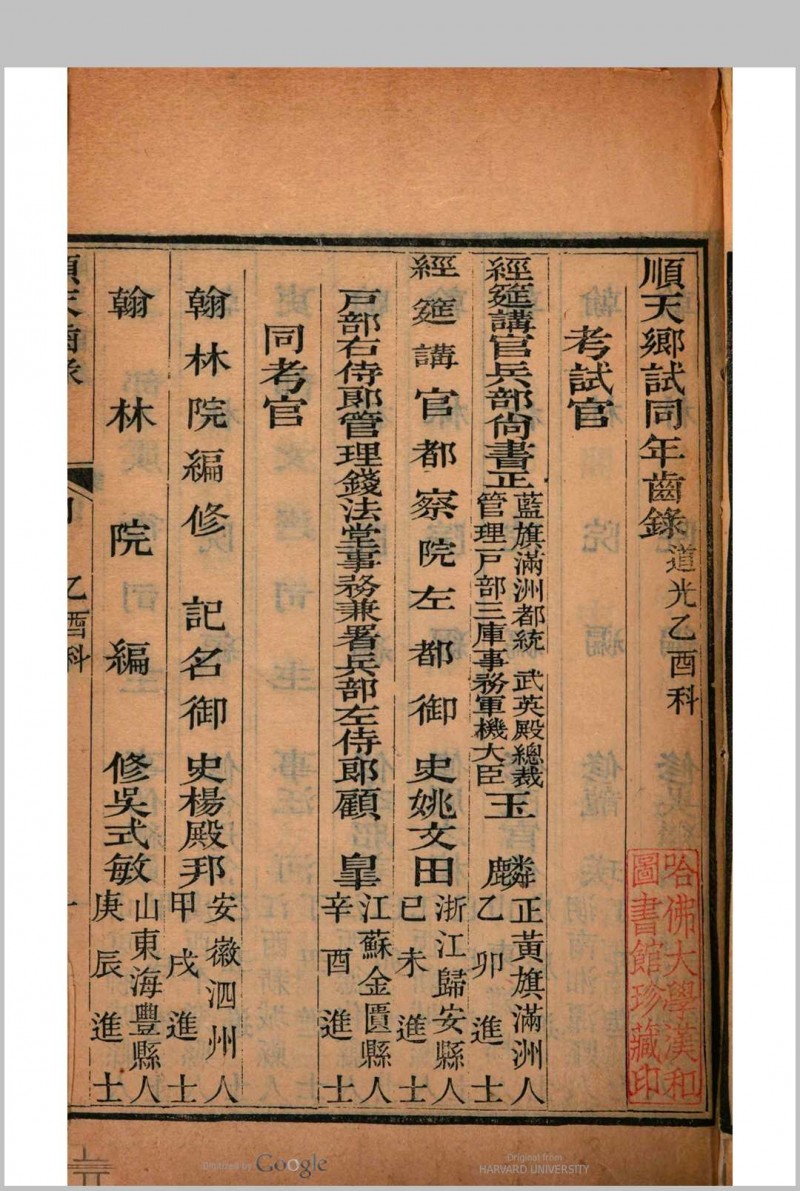 順天鄉試同年齒錄 道光乙酉科
考試官
經筵講官兵部尚書正藍旗滿洲都統 武英殿總裁管理戸部三庫事務軍機大臣玉 麟 正黃旗滿洲人 乙卯進士
經筵講官都察院左都御史姚文田 浙江歸安縣人 己未進士
戸部右侍郎管理錢法堂事務兼署兵部左侍郎顧 皐 江蘇金匱縣人 辛酉進士
同考官
翰林院編修 記名御史楊殿邦 安徽泗州人 甲戌進士
翰林院編修吳式敏 山東海豐縣人 庚辰進士
順天齒錄 乙酉科 一
哈佛大學漢和圖書館珍藏印
Digitized by Google
Original from
HARVARD UNIVERSITY